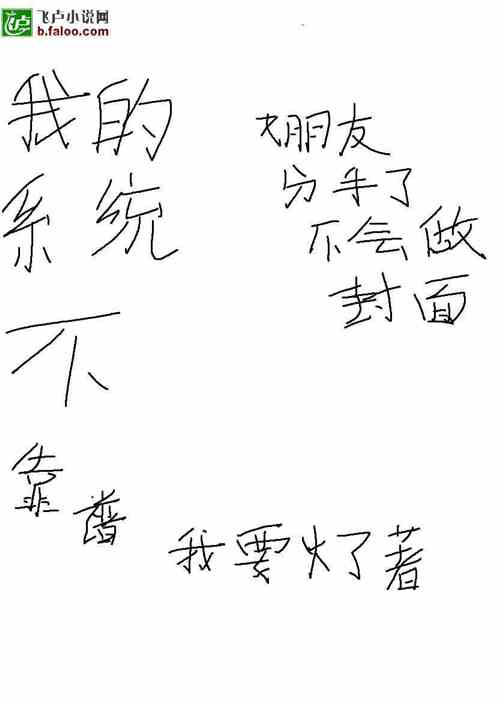 飞卢小说网
b.faloo.com
我的
系统
不
靠
普
朋友
分手了
不会做
封面
我要火了著